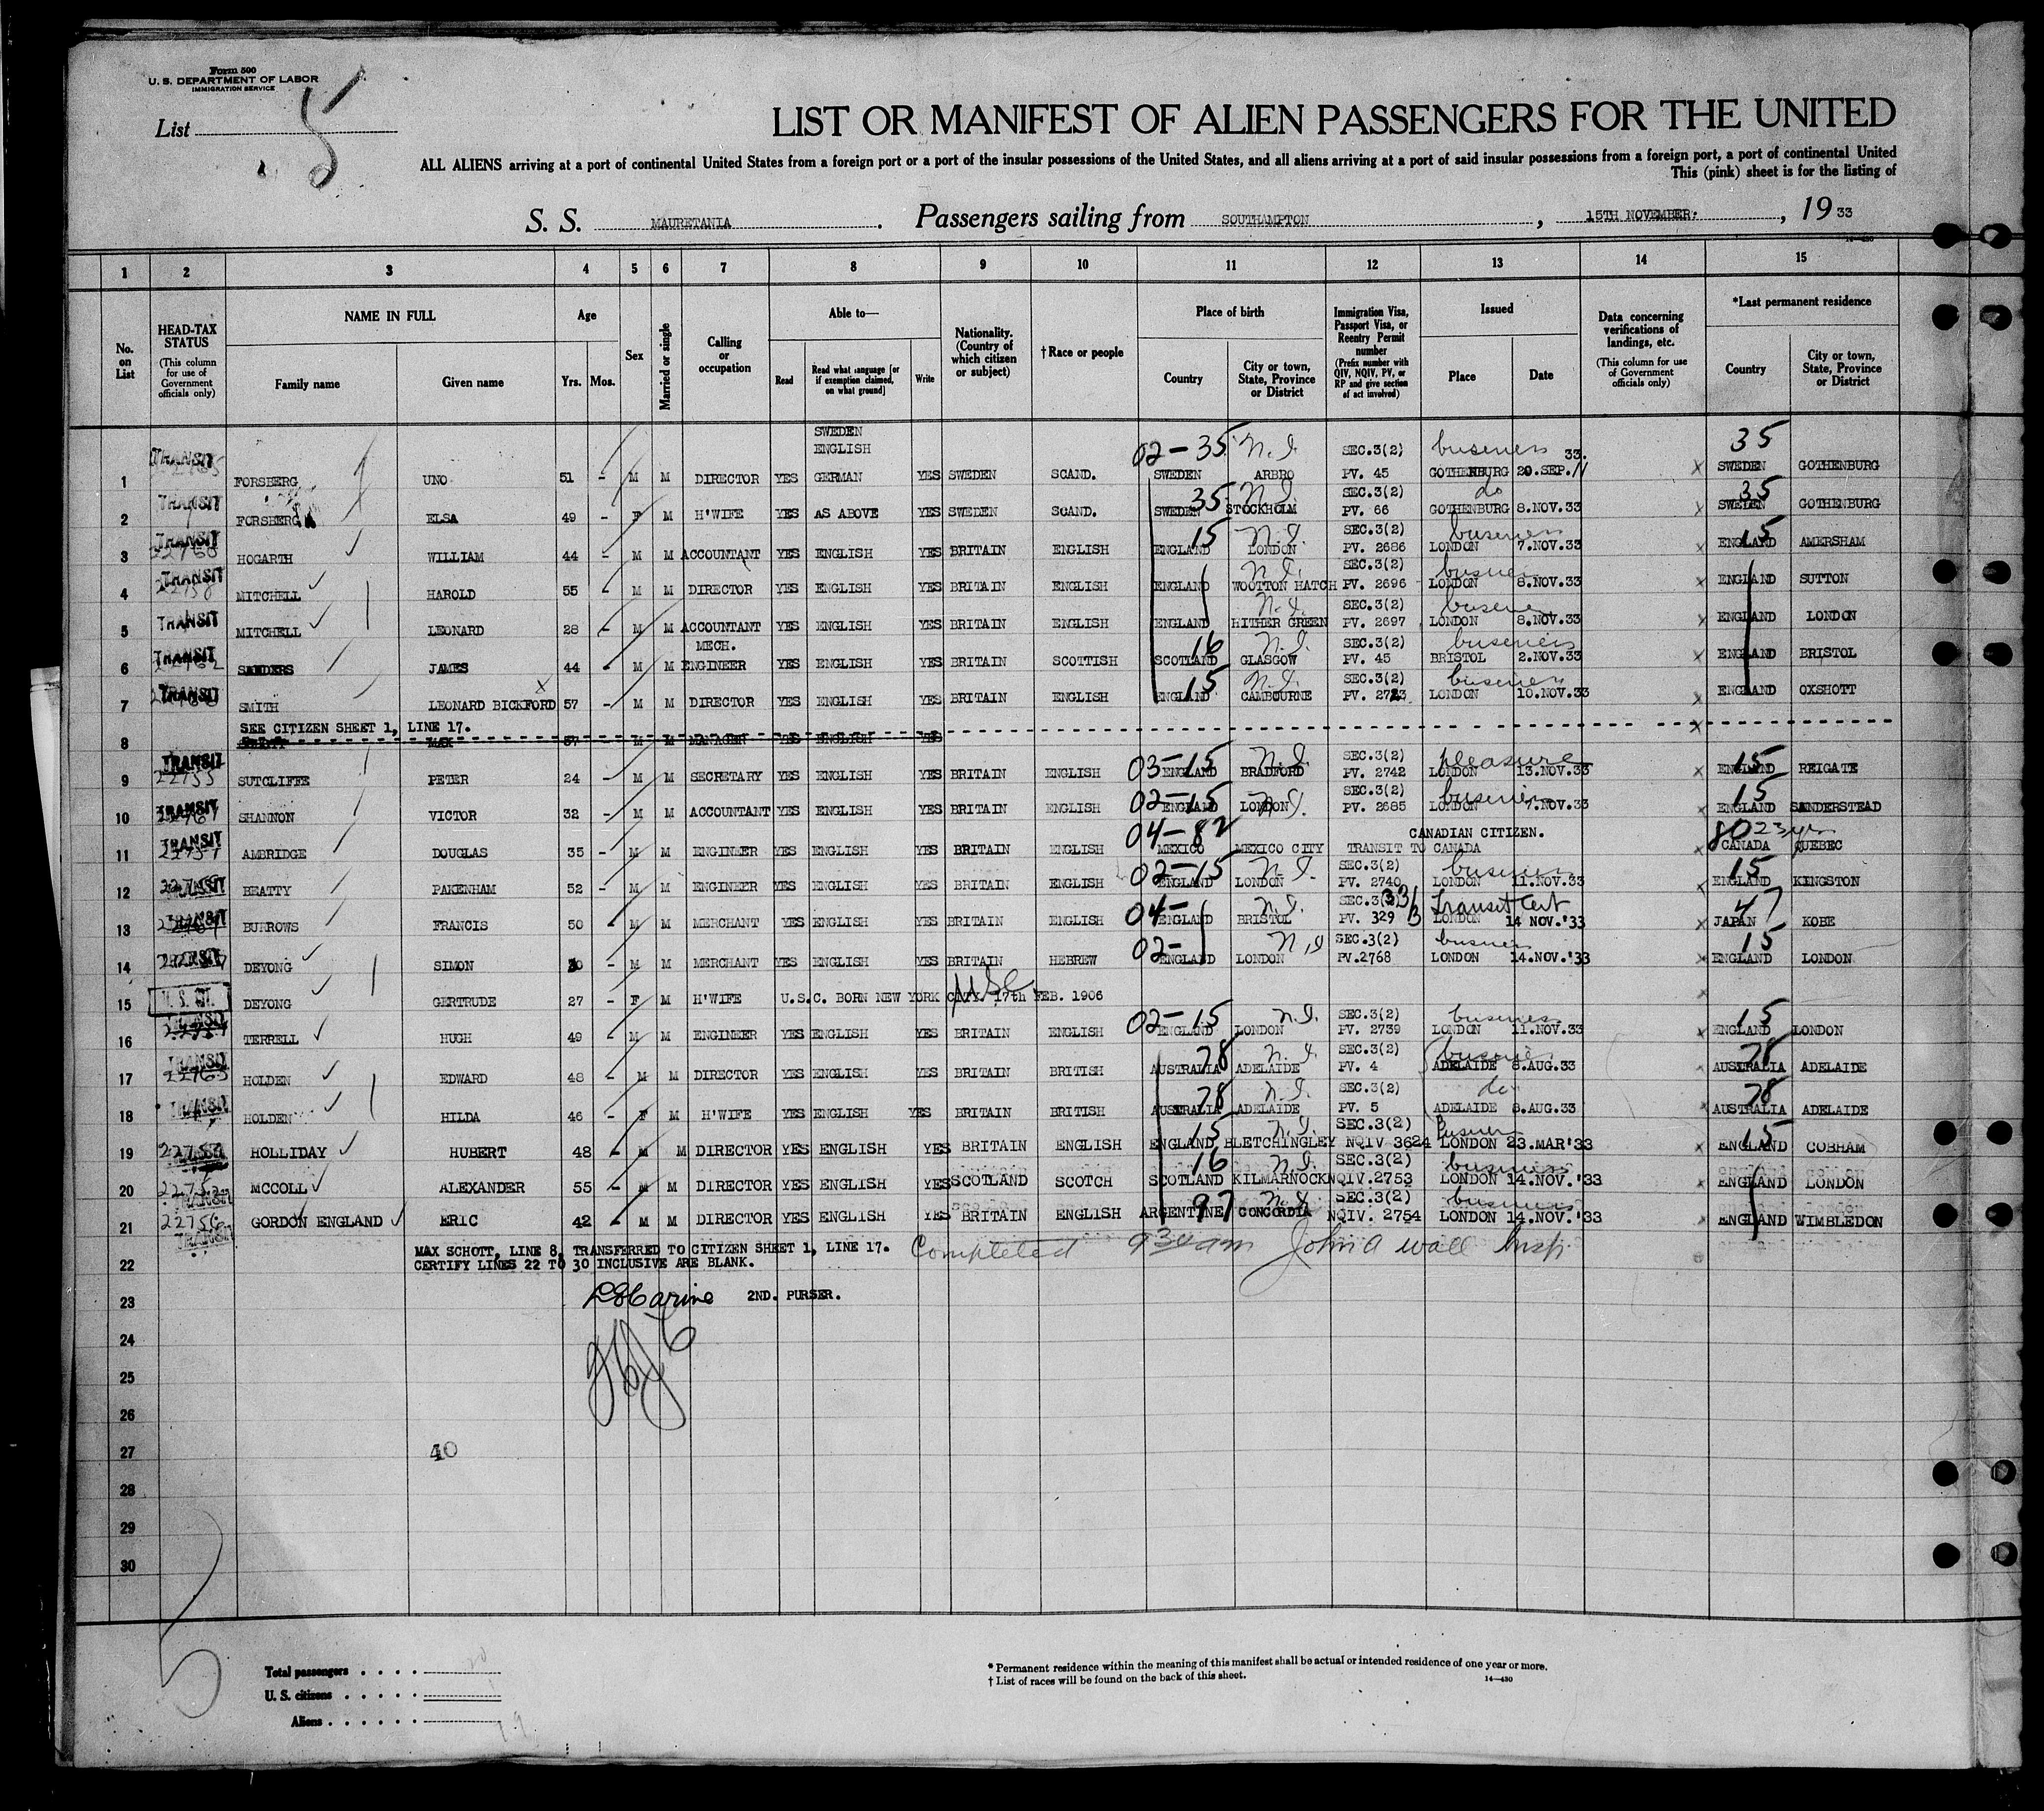 Form 500
U. S. DEPARTMENT OF LABOR
IMMIGRATION SERVICE
List 5
LIST OR MANIFEST OF ALIEN PASSENGERS FOR THE UNITED
ALL ALIENS arriving at a port of continental United States from a foreign port or a port of the insular possessions of the United States, and all aliens arriving at a port of said insular possessions from a foreign port, a port of continental United
This (pink) sheet is for the listing of
S. S. MAURETANIA. Passengers sailing from SOUTHAMPTON, 15TH NOVEMBER, 1933
14—430
1 2 3 4 5 6 7 8 9 10 11 12 13 14 15
No. on List
HEAD-TAX STATUS (This column for use of Government officials only)
NAME IN FULL Family name Given name
Age Yrs. Mos.
Sex
Married or single
Calling or occupation
Able to— Read Read what language [or if exemption claimed, on what ground] Write
Nationality. (Country of which citizen or subject)
†Race or people
Place of birth Country City or town, State, Province or District
Immigration Visa, Passport Visa, or Reentry Permit number (Prefix number with QIV, NQIV, PV, or RP and give section of act involved)
Issued Place Date
Data concerning verifications of landings, etc. (This column for use of Government officials only)
*Last permanent residence Country City or town, State, Province or District
SWEDEN
ENGLISH 02-35 N.I. SEC.3(2) business 33. 35
1 TRANSIT FORSBERG UNO 51 - M M DIRECTOR YES GERMAN YES SWEDEN SCAND. SWEDEN ARBRO PV. 45 GOTHENBURG 20.SEP. SWEDEN GOTHENBURG
35 N.I. SEC.3(2) do 35
2 TRANSIT FORSBERG ELSA 49 - F M H'WIFE YES AS ABOVE YES SWEDEN SCAND. SWEDEN STOCKHOLM PV. 66 GOTHENBURG 8.NOV.33 SWEDEN GOTHENBURG
15 N.I. SEC.3(2) business 15
3 TRANSIT HOGARTH WILLIAM 44 - M M ACCOUNTANT YES ENGLISH YES BRITAIN ENGLISH ENGLAND LONDON PV. 2686 LONDON 7.NOV.33 ENGLAND AMERSHAM
N.I. SEC.3(2) business
4 TRANSIT MITCHELL HAROLD 55 - M M DIRECTOR YES ENGLISH YES BRITAIN ENGLISH ENGLAND WOOTTON HATCH PV. 2696 LONDON 8.NOV.33 ENGLAND SUTTON
N.I. SEC.3(2) business
5 TRANSIT MITCHELL LEONARD 28 - M M ACCOUNTANT YES ENGLISH YES BRITAIN ENGLISH ENGLAND HITHER GREEN PV. 2697 LONDON 8.NOV.33 ENGLAND LONDON
MECH. 16 N.I. SEC.3(2) business
6 TRANSIT SANDERS JAMES 44 - M M ENGINEER YES ENGLISH YES BRITAIN SCOTTISH SCOTLAND GLASGOW PV. 45 BRISTOL 2.NOV.33 ENGLAND BRISTOL
15 N.I. SEC.3(2) business
7 TRANSIT SMITH LEONARD BICKFORD 57 - M M DIRECTOR YES ENGLISH YES BRITAIN ENGLISH ENGLAND CAMBOURNE PV. 2723 LONDON 10.NOV.33 ENGLAND OXSHOTT
SEE CITIZEN SHEET 1, LINE 17.
8 MAX 57 M M MANAGER YES ENGLISH YES
03-15 N.I. SEC.3(2) pleasure 15
9 TRANSIT 22755 SUTCLIFFE PETER 24 - M M SECRETARY YES ENGLISH YES BRITAIN ENGLISH ENGLAND BRADFORD PV. 2742 LONDON 13.NOV.33 ENGLAND REIGATE
02-15 N.I. SEC.3(2) business 15
10 TRANSIT SHANNON VICTOR 32 - M M ACCOUNTANT YES ENGLISH YES BRITAIN ENGLISH ENGLAND LONDON PV. 2685 LONDON 7.NOV.33 ENGLAND SANDERSTEAD
04-82 CANADIAN CITIZEN. 80 23 yrs
11 TRANSIT AMBRIDGE DOUGLAS 35 - M M ENGINEER YES ENGLISH YES BRITAIN ENGLISH MEXICO MEXICO CITY TRANSIT TO CANADA CANADA QUEBEC
02-15 N.I. SEC.3(2) business 15
12 BEATTY PAKENHAM 52 - M M ENGINEER YES ENGLISH YES BRITAIN ENGLISH ENGLAND LONDON PV. 2740 LONDON 11.NOV.33 ENGLAND KINGSTON
04- N.I. Transit Cert 47
13 TRANSIT BURROWS FRANCIS 50 - M M MERCHANT YES ENGLISH YES BRITAIN ENGLISH ENGLAND BRISTOL PV. 329 LONDON 14 NOV.'33 JAPAN KOBE
02- N.I. SEC.3(2) business 15
14 DEYONG SIMON M M MERCHANT YES ENGLISH YES BRITAIN HEBREW ENGLAND LONDON PV.2768 LONDON 14.NOV.'33 ENGLAND LONDON
USC
15 DEYONG GERTRUDE 27 - F M H'WIFE U.S.C. BORN NEW YORK CITY. 17th FEB. 1906
02-15 N.I. SEC.3(2) business 15
16 TERRELL HUGH 49 - M M ENGINEER YES ENGLISH YES BRITAIN ENGLISH ENGLAND LONDON PV. 2739 LONDON 11.NOV.33 ENGLAND LONDON
78 N.I. SEC.3(2) business 78
17 TRANSIT 22763 HOLDEN EDWARD 48 - M M DIRECTOR YES ENGLISH YES BRITAIN BRITISH AUSTRALIA ADELAIDE PV. 4 ADELAIDE 8.AUG.33 AUSTRALIA ADELAIDE
78 N.I. SEC.3(2) do 78
18 TRANSIT HOLDEN HILDA 46 - F M H'WIFE YES ENGLISH YES BRITAIN BRITISH AUSTRALIA ADELAIDE PV. 5 ADELAIDE 8.AUG.33 AUSTRALIA ADELAIDE
15 N.I. SEC.3(2) business 15
19 HOLLIDAY HUBERT 48 - M M DIRECTOR YES ENGLISH YES BRITAIN ENGLISH ENGLAND BLETCHINGLEY NQIV 3624 LONDON 23.MAR'33 ENGLAND COBHAM
16 N.I. SEC.3(2) business
20 MCCOLL ALEXANDER 55 - M M DIRECTOR YES ENGLISH YES SCOTLAND SCOTCH SCOTLAND KILMARNOCK NQIV.2753 LONDON 14.NOV.'33 ENGLAND LONDON
97 N.I. SEC.3(2) business
21 22756 TRANSIT GORDON ENGLAND ERIC 42 - M M DIRECTOR YES ENGLISH YES BRITAIN ENGLISH ARGENTINE CONCORDIA NQIV. 2754 LONDON 14.NOV.'33 ENGLAND WIMBLEDON
MAX SCHOTT, LINE 8, TRANSFERRED TO CITIZEN SHEET 1, LINE 17. Completed 9 30 am John A Wall Insp.
22 CERTIFY LINES 22 TO 30 INCLUSIVE ARE BLANK.
23 2ND. PURSER.
24
25
26
27 40
28
29
30
Total passengers
U. S. citizens
Aliens
* Permanent residence within the meaning of this manifest shall be actual or intended residence of one year or more.
† List of races will be found on the back of this sheet. 14—430